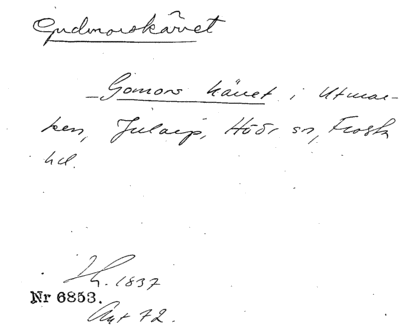 Gudmorskärret
Gomors kärret i Utmar-
ken, Jularp, Höörs sn, Frosta
hd.
Lh. 1837
Nr 6853.
Avst 72.